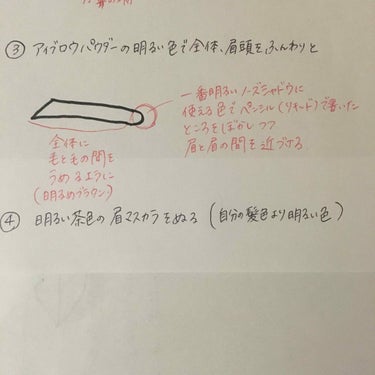 ③ アイブロウパウダーの明るい色で全体、眉頭をふんわりと
一番明るいノーズシャドウに
使える色でペンシル(リキッド)で書いた
ところをぼかしつつ
眉と眉の間を近づける
全体に
毛と毛の間を
うめるように
(明るめブラウン)
④ 明るい茶色の眉マスカラをぬる (自分の髪色より明るい色)